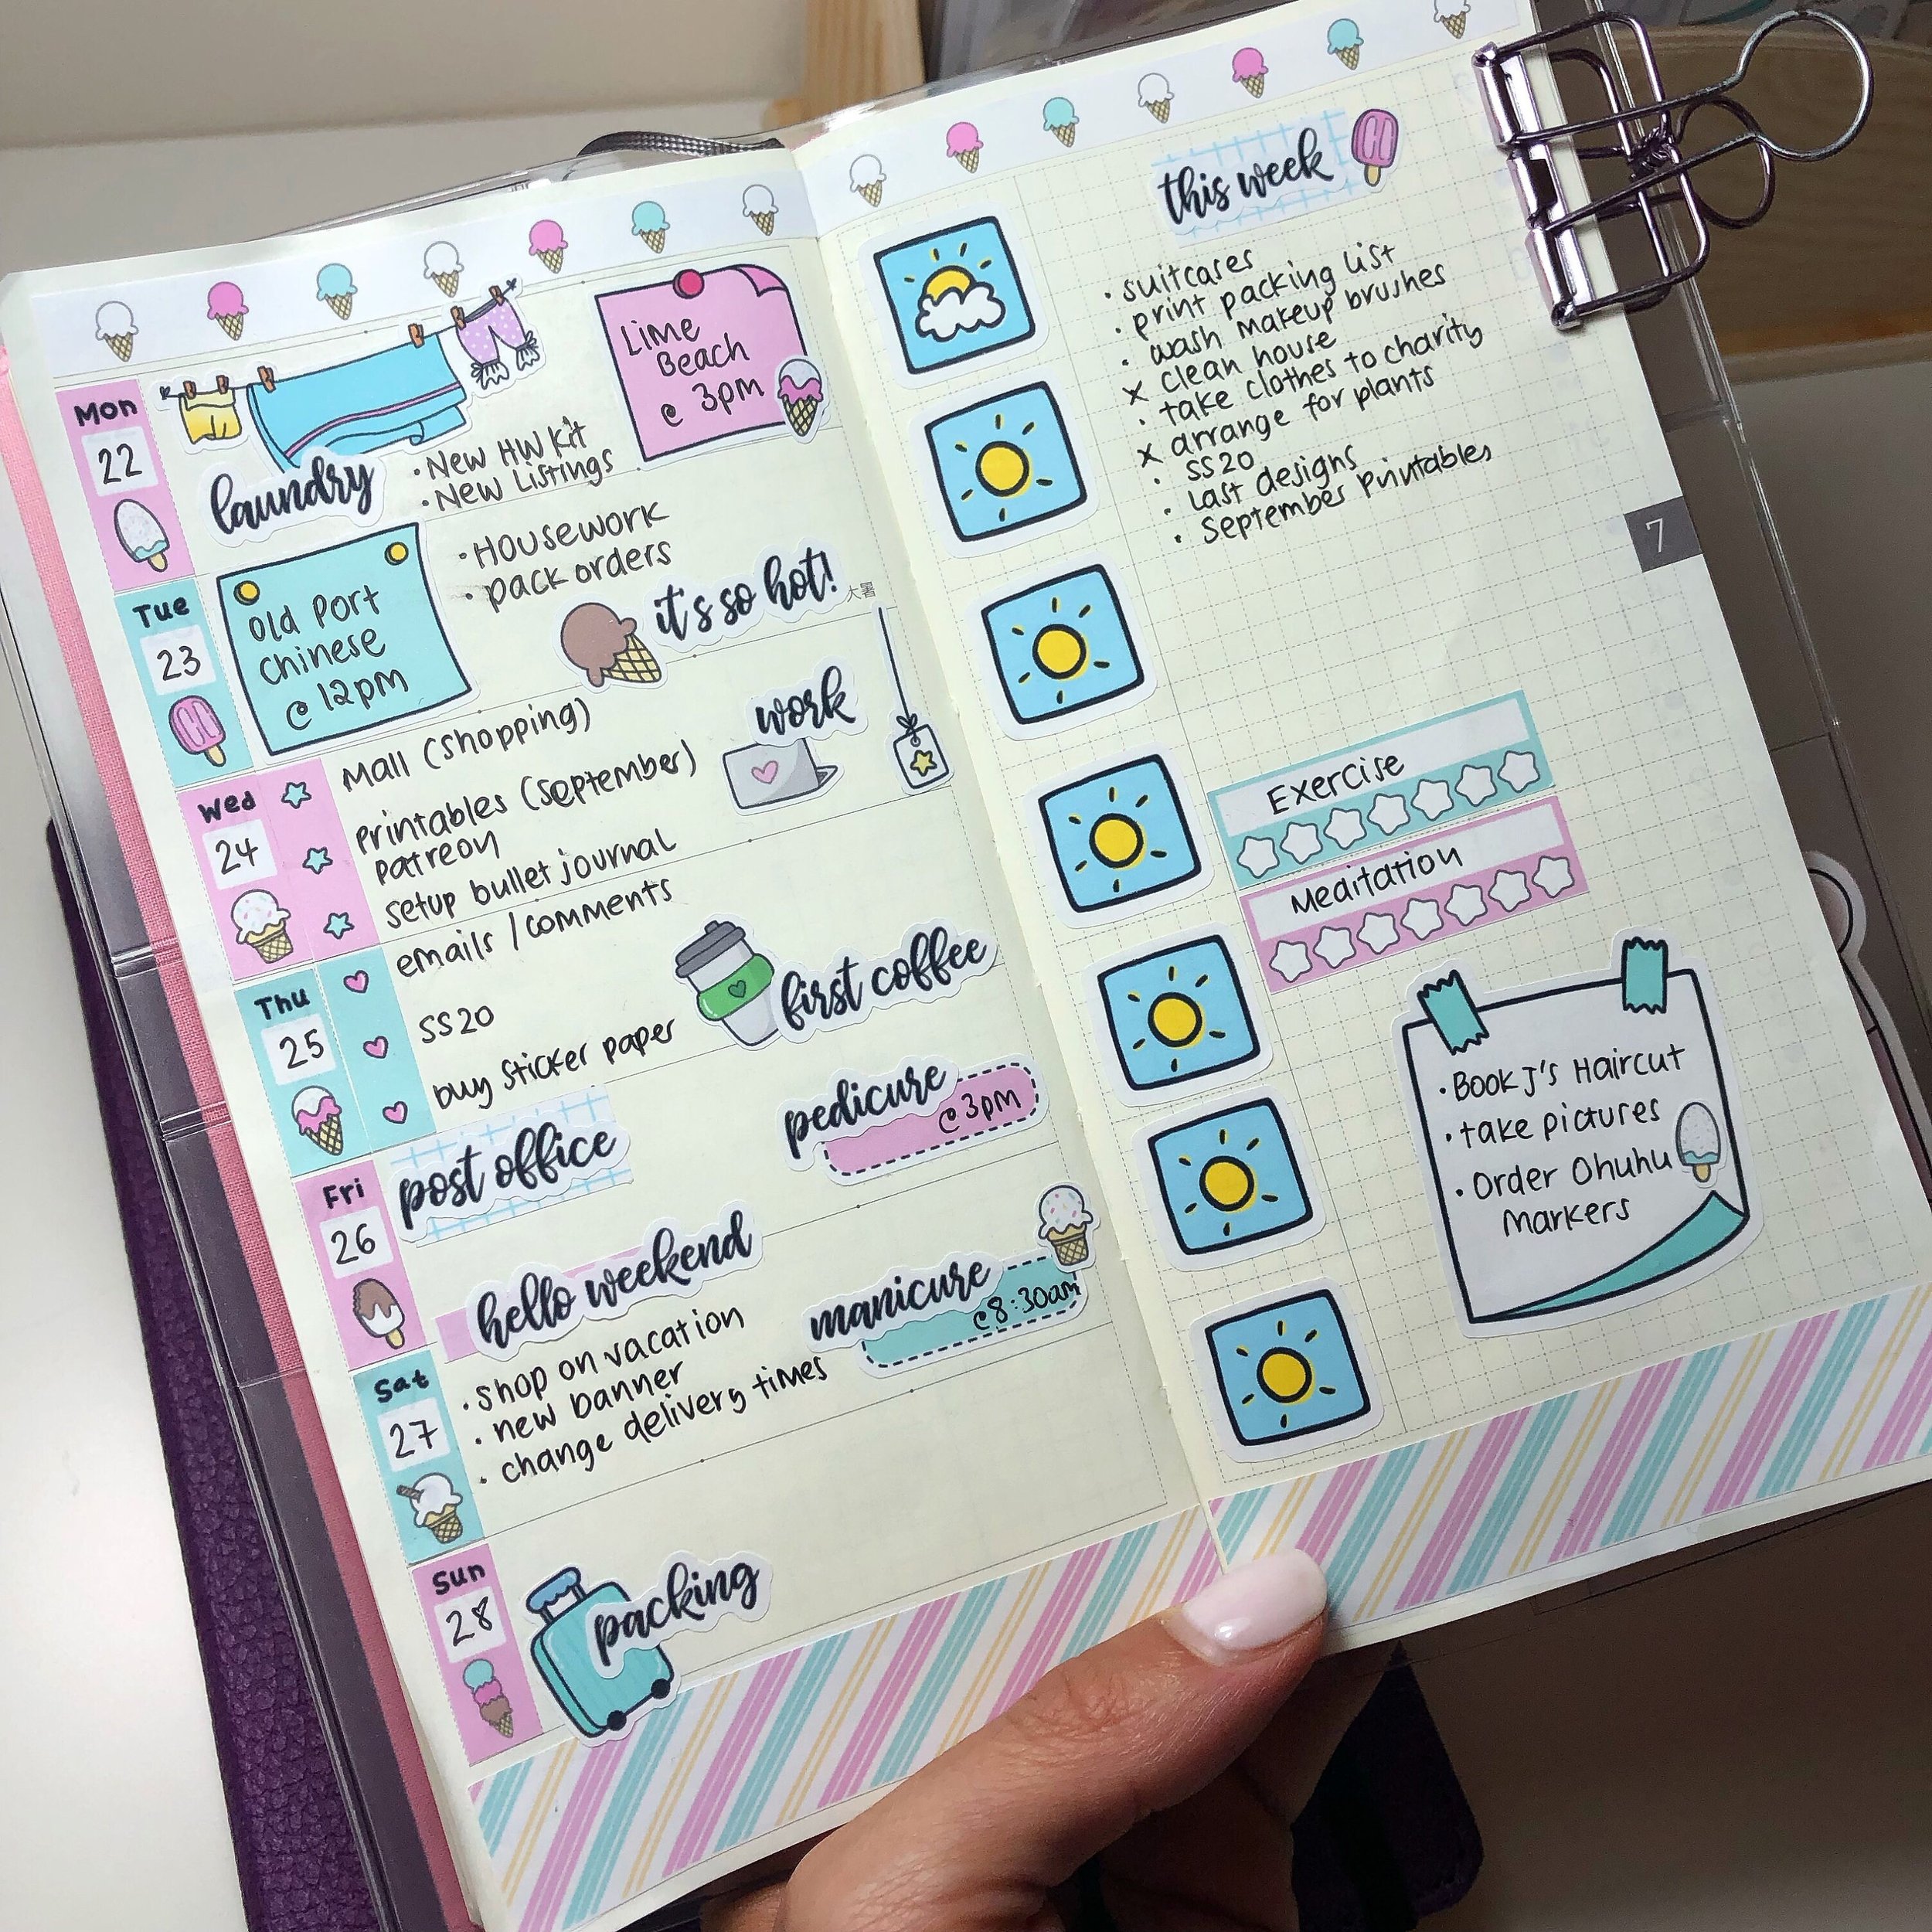 Mon
22
laundry
• New HW Kit
• New Listings
Lime
Beach
@ 3pm
Tue
23
Old Port
Chinese
@ 12pm
• Housework
• pack orders
it's so hot!
大暑
Wed
24
Mall (shopping)
Printables (September)
Patreon
setup bullet journal
work
Thu
25
emails / comments
SS20
buy sticker paper
first coffee
Fri
26
post office
pedicure
@ 3pm
Sat
27
hello weekend
• shop on vacation
• new banner
• change delivery times
manicure
@ 8:30am
Sun
28
packing
this week
• suitcases
• print packing list
• wash makeup brushes
x clean house
• take clothes to charity
x arrange for plants
• SS20
• Last designs
• September printables
7
Exercise
Meditation
• Book J's Haircut
• take pictures
• Order Ohuhu
Markers